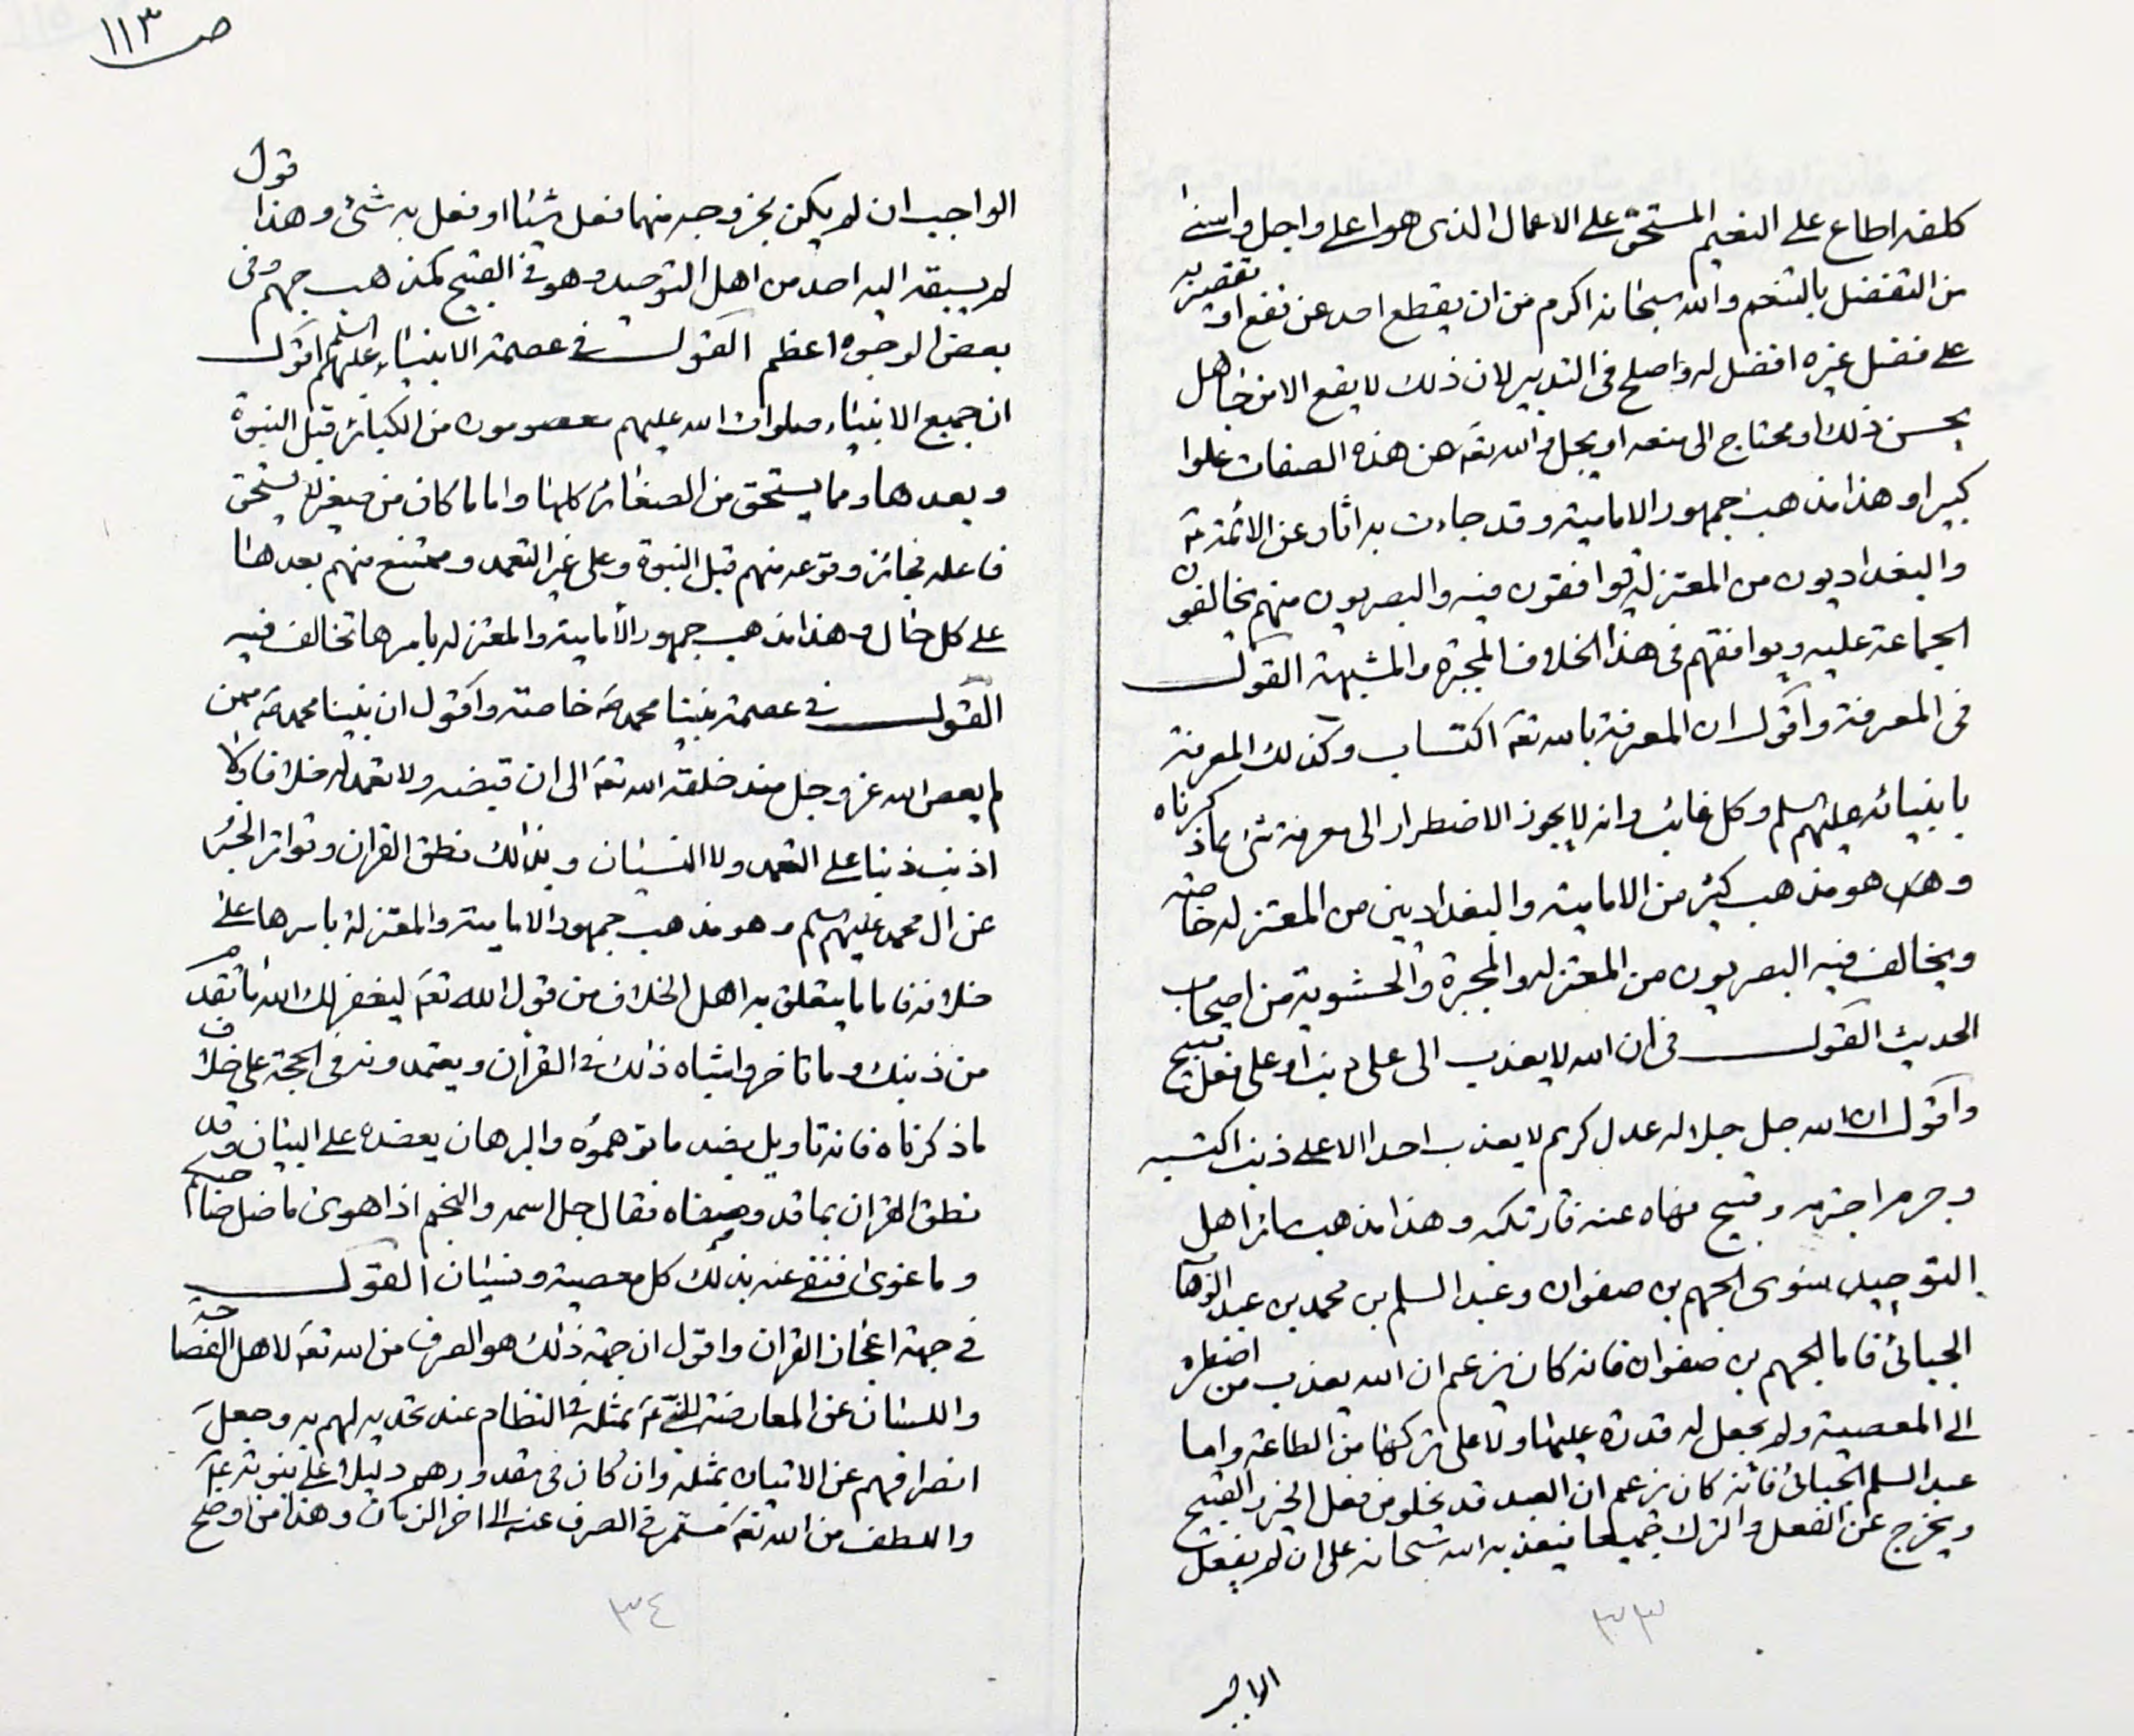 كلفه اطاع على النعيم المستحق على الاعمال الذى هو اعلى واجل واسنى
من التفضل بالتنعم والله سبحانه اكرم من ان يقطع احد عن نفع او تقصير به
على فضل غيره افضل له واصلح فى التدبير لان ذلك لا يقع الا من جاهل
بحسن ذلك او محتاج الى منعه او بخل والله تعه عن هذه الصفات علوا
كبيرا وهذا مذهب جمهور الامامية وقد جاءت به اثار عن الائمة ع
والبغداديون من المعتزلة يوافقون فيه والبصريون منهم يخالفون
الجماعة عليه ويوافقهم فى هذا الخلاف المجبرة والمشبهة القول
فى المعرفة واقول ان المعرفة بالله تعه اكتساب وكذلك المعرفة
بانبيائه عليهم السلم وكل غائب وانه لا يجوز الاضطرار الى معرفة شئ مما ذكرناه
وهذا هو مذهب كثير من الامامية والبغداديين من المعتزله خاصة
ويخالف فيه البصريون من المعتزله والمجبرة والحشوية من اصحاب
الحديث القول فى ان الله لا يعذب الى على ذنب او على فعل قبيح
واقول ان الله جل جلاله عدل كريم لا يعذب احدا الا على ذنب اكتسبه
وجرم اجترمه وقبيح نهاه عنه فارتكبه وهذا مذهب سائر اهل
التوحيد سوى الجهم بن صفوان وعبد السلم بن محمد بن عبد الوهاب
الجبائى فاما الجهم بن صفوان فانه كان يزعم ان الله يعذب من اضطره
الى المعصية ولم يجعل له قدرة عليها ولا على تركها من الطاعة واما
عبد السلم الجبائى فانه كان يزعم ان العبد قد يخلو من فعل الخير والقبيح
ويخرج عن الفعل والترك جميعا فيعذبه الله سبحانه على ان لم يفعل
٣٣
ص ١١٣
الواجب ان لم يكن بخروجه منهما فعل شيئا او فعل به شئ وهذا قول
لم يسبقه اليه احد من اهل التوحيد وهو فى القبيح كمذهب جهم وفى
بعض الوجوه اعظم القول فى عصمة الانبياء عليهم السلم اقول
ان جميع الانبياء صلوات الله عليهم معصومون من الكبائر قبل النبوة
وبعدها ومما يستحق من الصغائر كلها واما ما كان من صغير لا يستحق
فاعله فجائز وقوعه منهم قبل النبوة وعلى غير التعمد وممتنع منهم بعدها
على كل حال وهذا مذهب جمهور الأمامية والمعتزله باسرها تخالف فيه
القول فى عصمة نبينا محمد ص خاصة واقول ان نبينا محمد ص ممن
لم يعص الله عز وجل منذ خلقه الله تعه الى ان قبضه ولا تعمد له خلافا ولا
اذنب ذنبا على التعمد ولا النسيان وبذلك نطق القران وتواتر الخبر
عن ال محمد عليهم السلم وهو مذهب جمهور الامامية والمعتزلة باسرها على
خلافه فاما ما يتعلق به اهل الخلاف من قول الله تعه ليغفر لك الله ما تقدم
من ذنبك وما تاخر واشباه ذلك فى القران ويعتمدونه فى الحجة على خلاف
ما ذكرناه فانه تاويل بضد ما توهموه والبرهان يعضده على البيان وقد
نطق القران بما قد وصفناه فقال جل اسمه والنجم اذا هوى ما ضل صاحبكم
وما غوى فنفى عنه بذلك كل معصية ونسيان القول
فى جهة اعجاز القران واقول ان جهة ذلك هو الصرف من الله تعه لاهل الفصاحة
واللسان عن المعارضة للنبى ع بمثله فى النظام عند تحديه لهم به وجعل
انصرافهم عن الاتيان بمثله وان كان فى مقدورهم دليلا على نبوته ع
واللطف من الله تعه مستمر فى الصرف عنه الى اخر الزمان وهذا من اوضح
٣٤